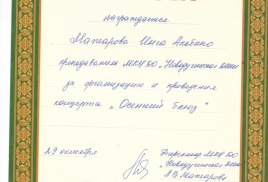 награждается
Макарова Инга
преподаватель МКУ ДО "Новодугинская ДМШ"
за организацию и проведение
концерта "Осенний блюз"
29 октября
Директор МКУ ДО
"Новодугинская ДМШ"